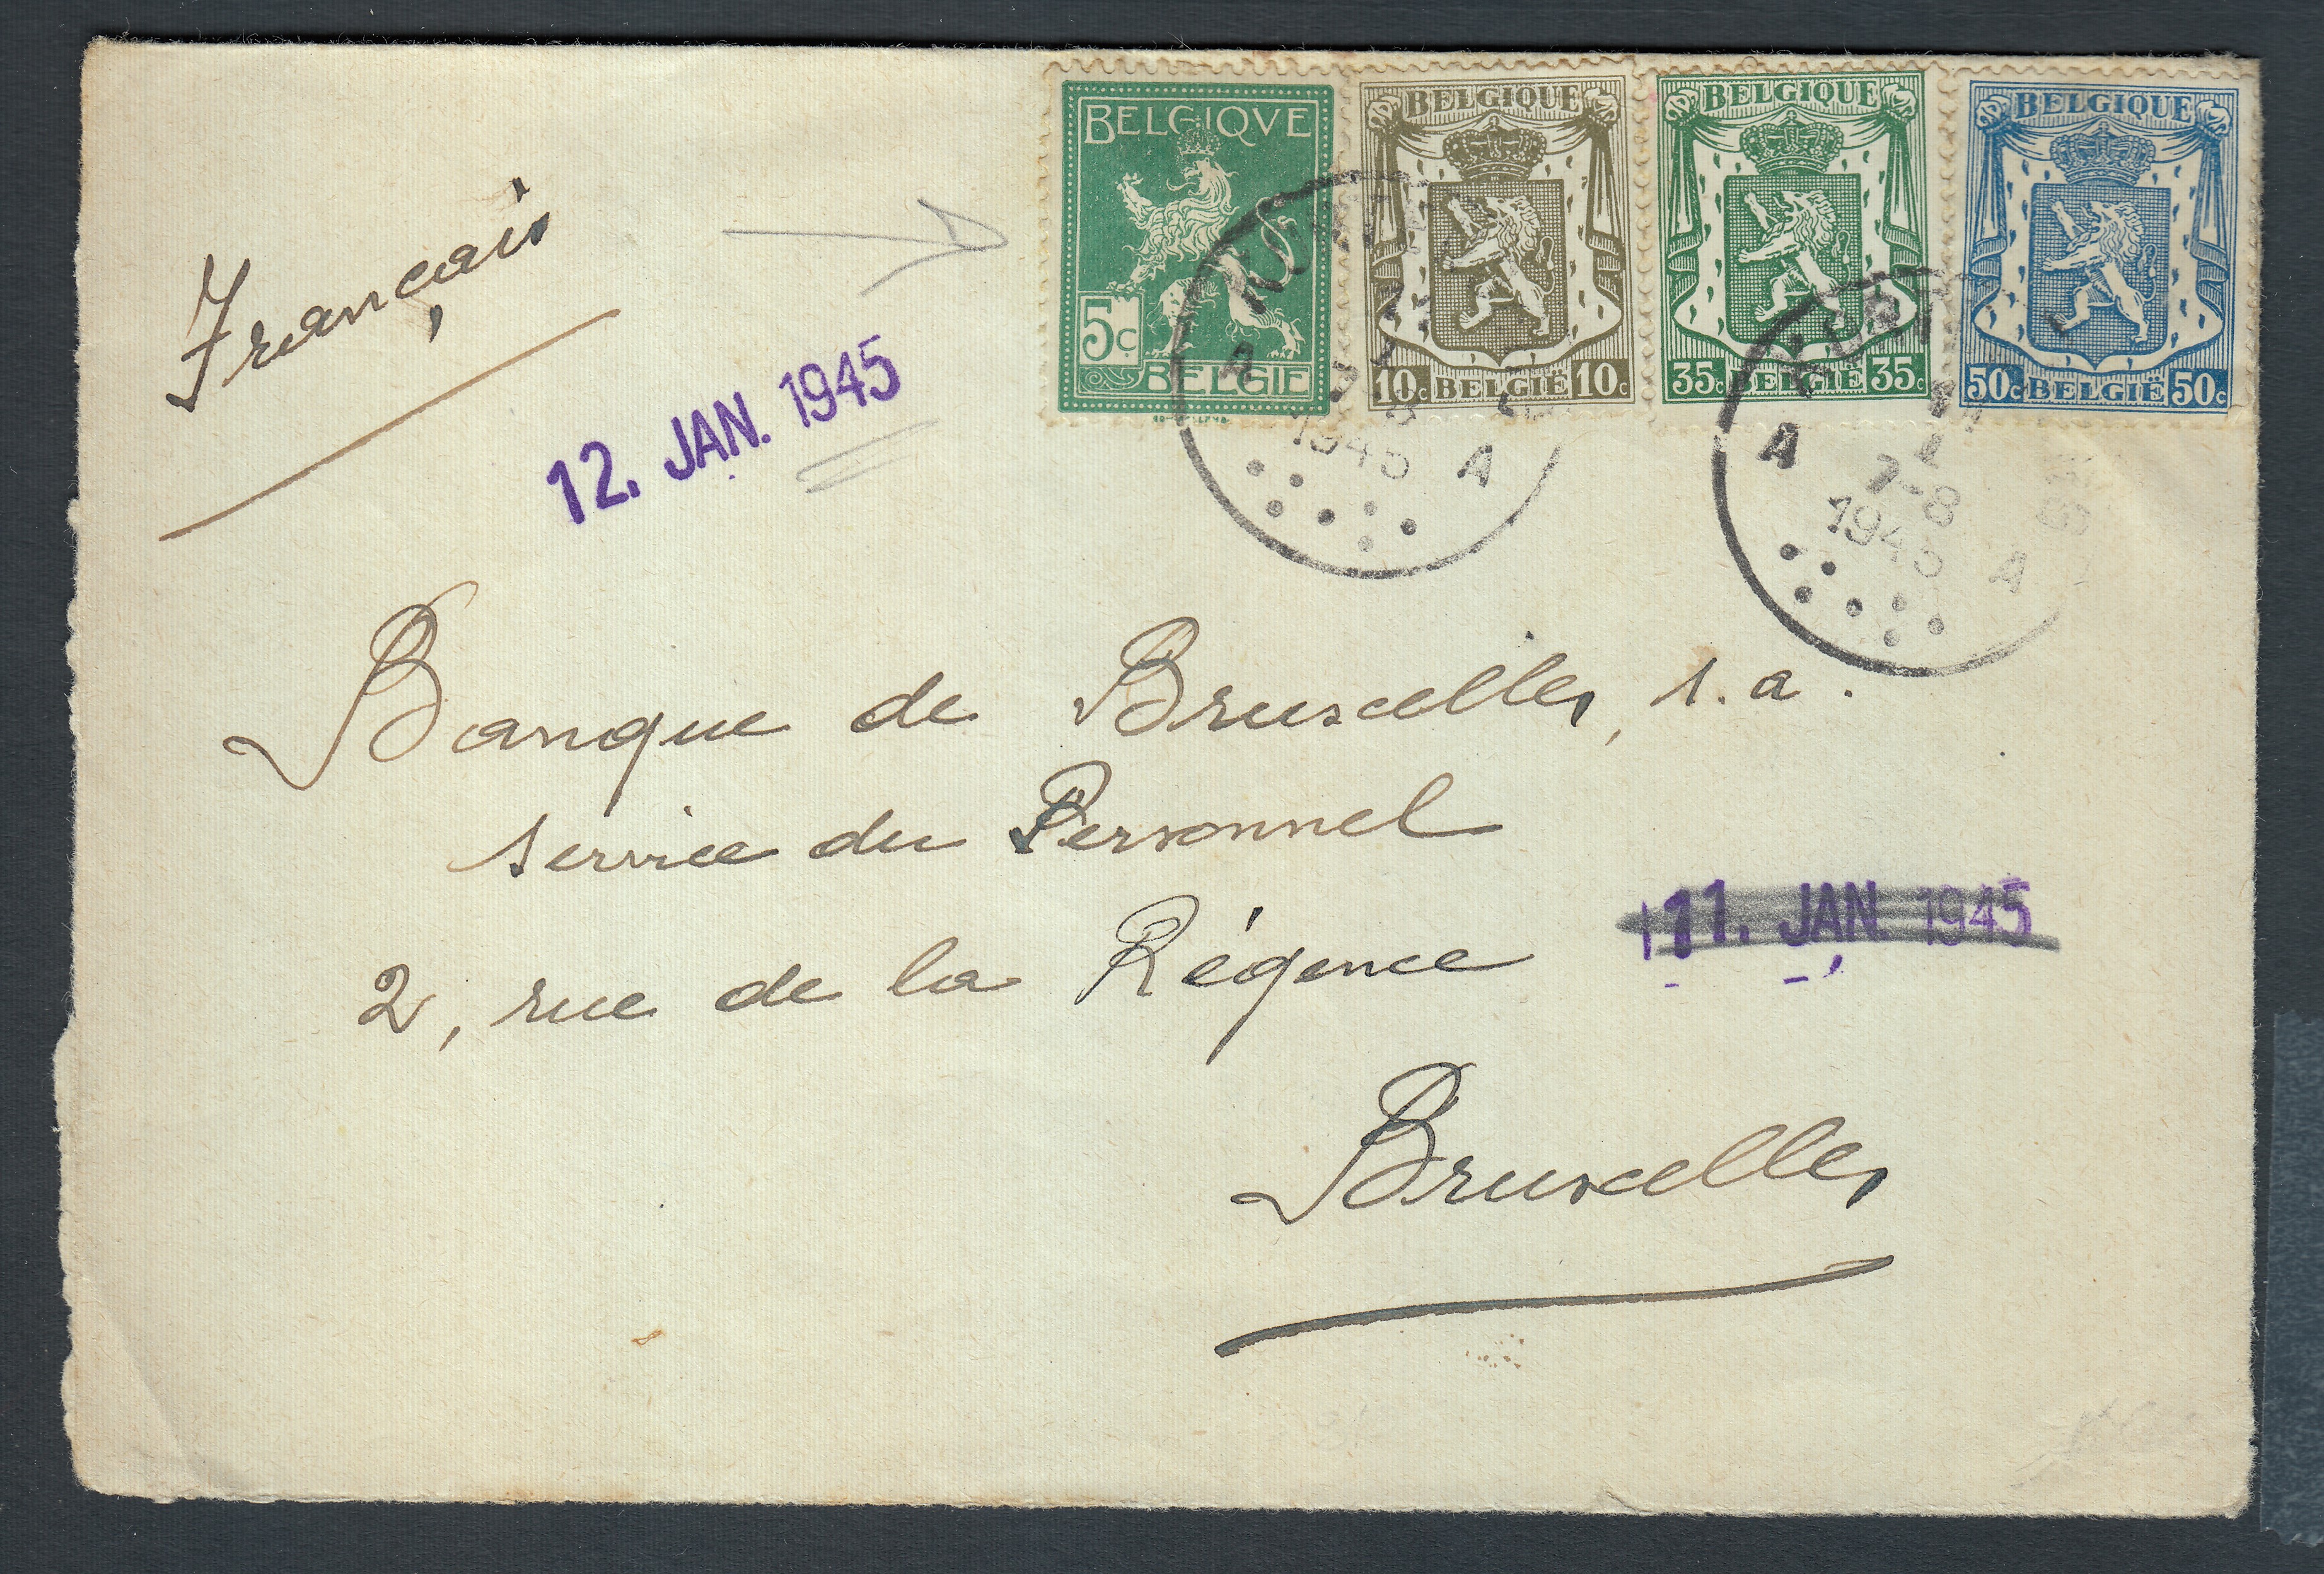 BELGIQVE
5c
BELGIE
BELGIQUE
10c BELGIË 10c
BELGIQUE
35c BELGIË 35c
BELGIQUE
50c BELGIË 50c
A
1945 A
A
1
7-8
1945 A
Français
12. JAN. 1945
Banque de Bruxelles, s.a.
service du Personnel
2, rue de la Régence
11. JAN. 1945
Bruxelles